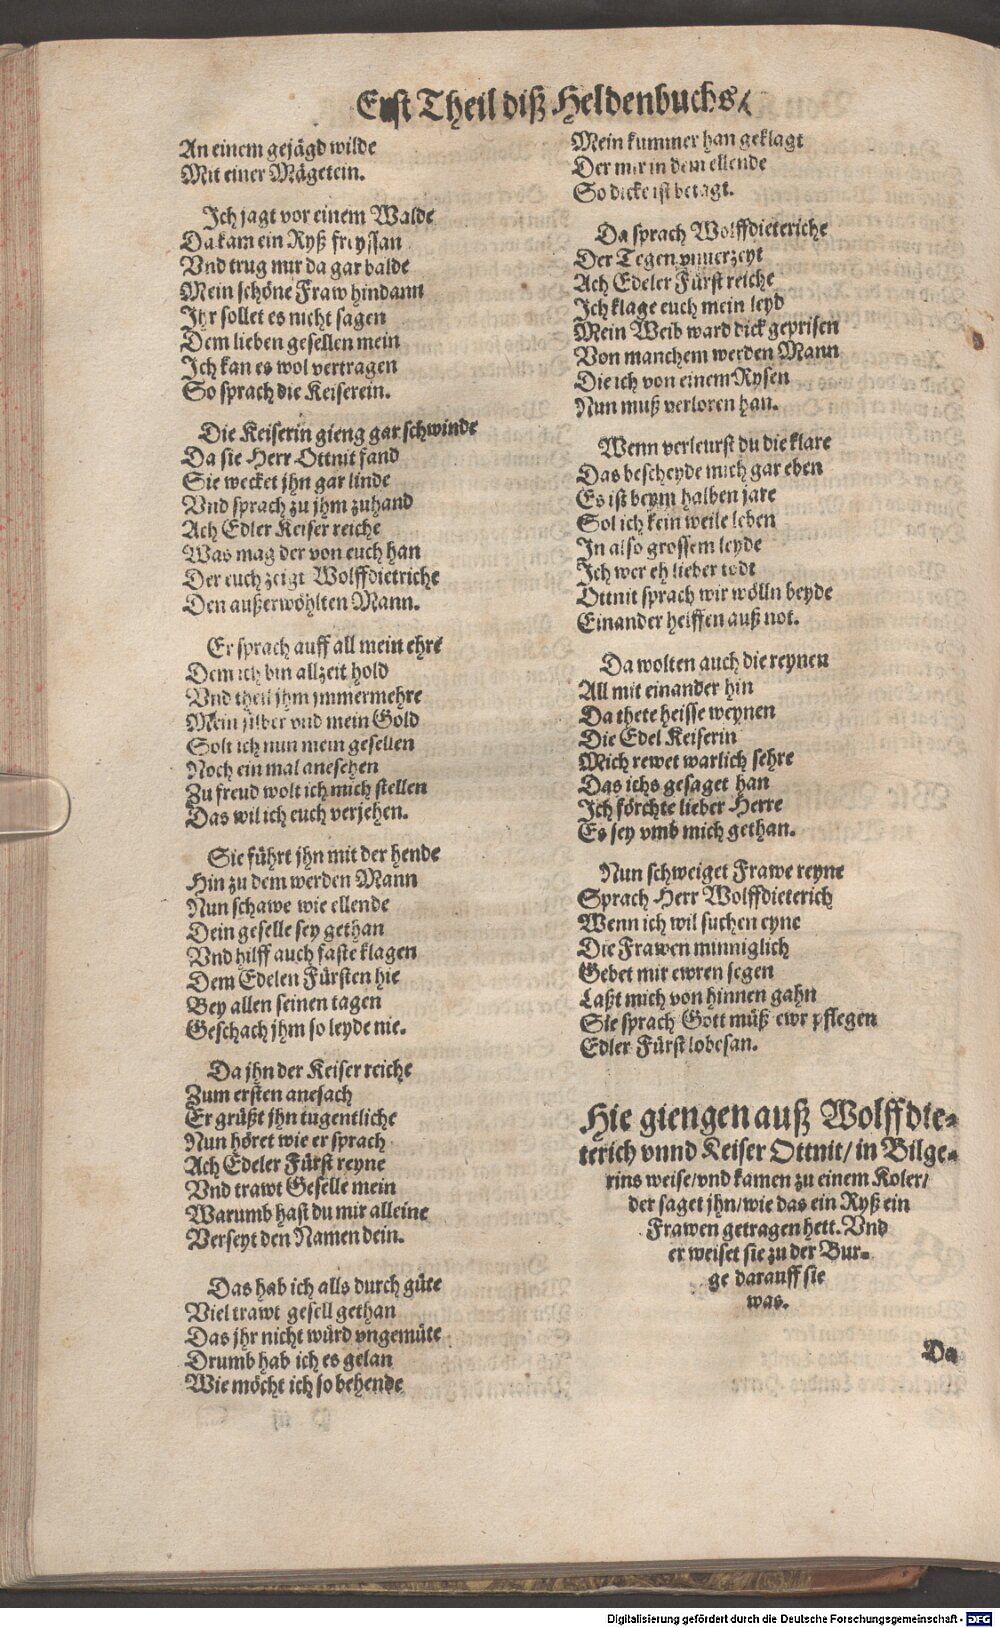 Erst Theil diß Heldenbuchs/
An einem gejägd wilde
Mit einer Mägetein.
Ich jagt vor einem Walde
Da kam ein Ryß freyssan
Vnd trug mir da gar balde
Mein schöne Fraw hindann
Ihr sollet es nicht sagen
Dem lieben gesellen mein
Ich kan es wol vertragen
So sprach die Keiserein.
Die Keiserin gieng gar schwinde
Da sie Herr Ottnit fand
Sie wecket jhn gar linde
Vnd sprach zu jhm zuhand
Ach Edler Keiser reiche
Was mag der von euch han
Der euch zeigt Wolffdietriche
Den außerwöhlten Mann.
Er sprach auff all mein ehre
Dem ich bin allzeit hold
Vnd theil jhm jmmermehre
Mein silber vnd mein Gold
Solt ich nun mein gesellen
Noch ein mal anesehen
Zu freud wolt ich mich stellen
Das wil ich euch verjehen.
Sie führt jhn mit der hende
Hin zu dem werden Mann
Nun schawe wie ellende
Dein geselle sey gethan
Vnd hilff auch faste klagen
Dem Edelen Fürsten hie
Bey allen seinen tagen
Geschach jhm so leyde nie.
Da jhn der Keiser reiche
Zum ersten anesach
Er grüßt jhn tugentliche
Nun höret wie er sprach
Ach Edeler Fürst reyne
Vnd trawt Geselle mein
Warumb hast du mir alleine
Verseyt den Namen dein.
Das hab ich alls durch güte
Viel trawt gesell gethan
Das jhr nicht würd vngemüte
Drumb hab ich es gelan
Wie möcht ich so behende
Mein kummer han geklagt
Der mir in dem ellende
So dicke ist betagt.
Da sprach Wolffdieteriche
Der Tegen vnuerzeyt
Ach Edeler Fürst reiche
Ich klage euch mein leyd
Mein Weib ward dick geprisen
Von manchem werden Mann
Die ich von einem Rysen
Nun muß verloren han.
Wenn verleurst du die klare
Das bescheyde mich gar eben
Es ist beym halben jare
Sol ich kein weile leben
In also grossem leyde
Ich wer eh lieber todt
Ottnit sprach wir wölln beyde
Einander helffen auß not.
Da wolten auch die reynen
All mit einander hin
Da thete heisse weynen
Die Edel Keiserin
Mich rewet warlich sehre
Das ichs gesaget han
Ich förchte lieber Herre
Es sey vmb mich gethan.
Nun schweiget Frawe reyne
Sprach Herr Wolffdieterich
Wenn ich wil suchen eyne
Die Frawen minniglich
Gebet mir ewren segen
Laßt mich von hinnen gahn
Sie sprach Gott müß ewr pflegen
Edler Fürst lobesan.
Hie giengen auß Wolffdie-
terich vnnd Keiser Ottnit/ in Bilge-
rins weise/ vnd kamen zu einem Koler/
der saget jhn/ wie das ein Ryß ein
Frawen getragen hett. Vnd
er weiset sie zu der Bur-
ge darauff sie
was.
Da
Digitalisierung gefördert durch die Deutsche Forschungsgemeinschaft - DFG